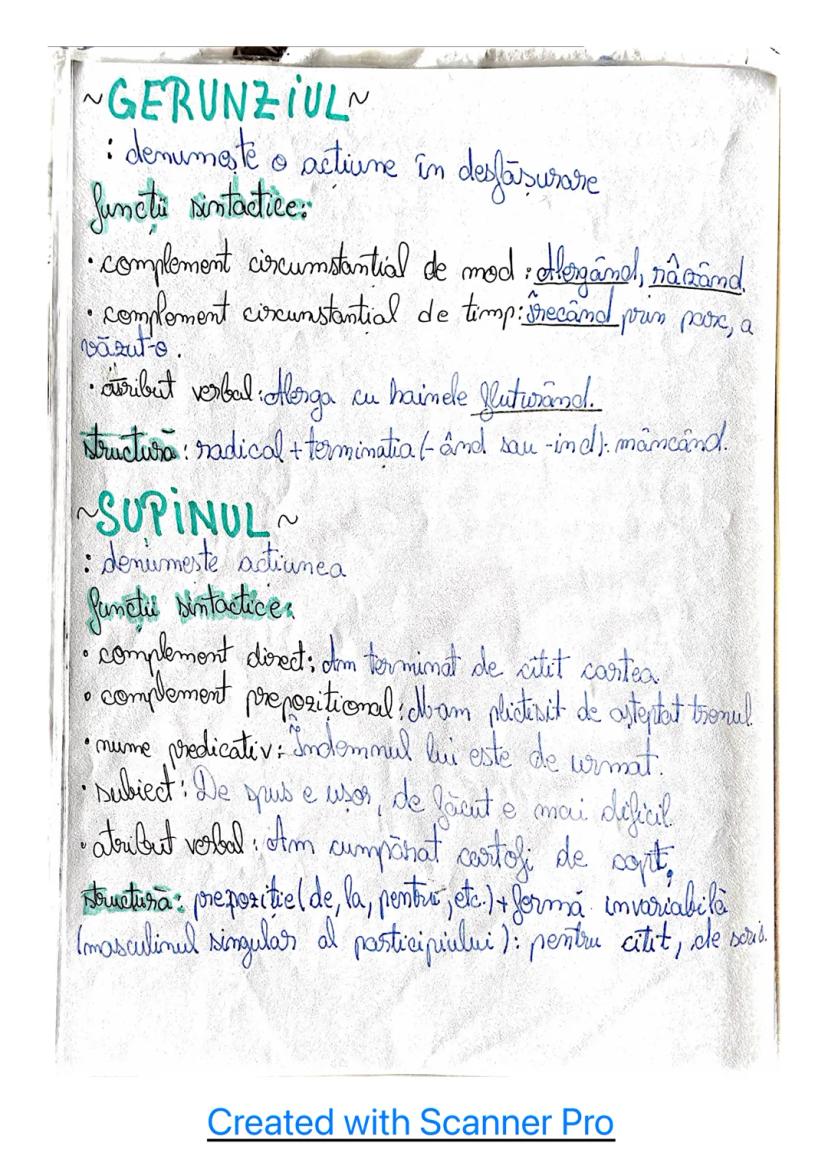 ~GERUNZiUL~
: denumește o acțiune în desfășurare
funcții sintactice:
• complement circumstanțial de mod: Alergând, râzând.
• complement circunstanțial de timp: Trecând prin parc, a
văzut-o.
• atribut verbal: Alerga cu hainele fluturând.
structură: radical + terminația (-ând sau -ind): mâncând.
~SUPiNUL~
: denumește acțiunea
funcții sintactice:
• complement direct: Am terminat de citit cartea.
• complement prepozițional: M-am plictisit de așteptat trenul.
• nume predicativ: Îndemnul lui este de urmat.
• subiect: De spus e ușor, de făcut e mai dificil.
• atribut verbal: Am cumpărat cartofi de copt.
structură: prepoziție (de, la, pentru, etc.) + formă invariabilă
(masculinul singular al participiului): pentru citit, de scris.
Created with Scanner Pro